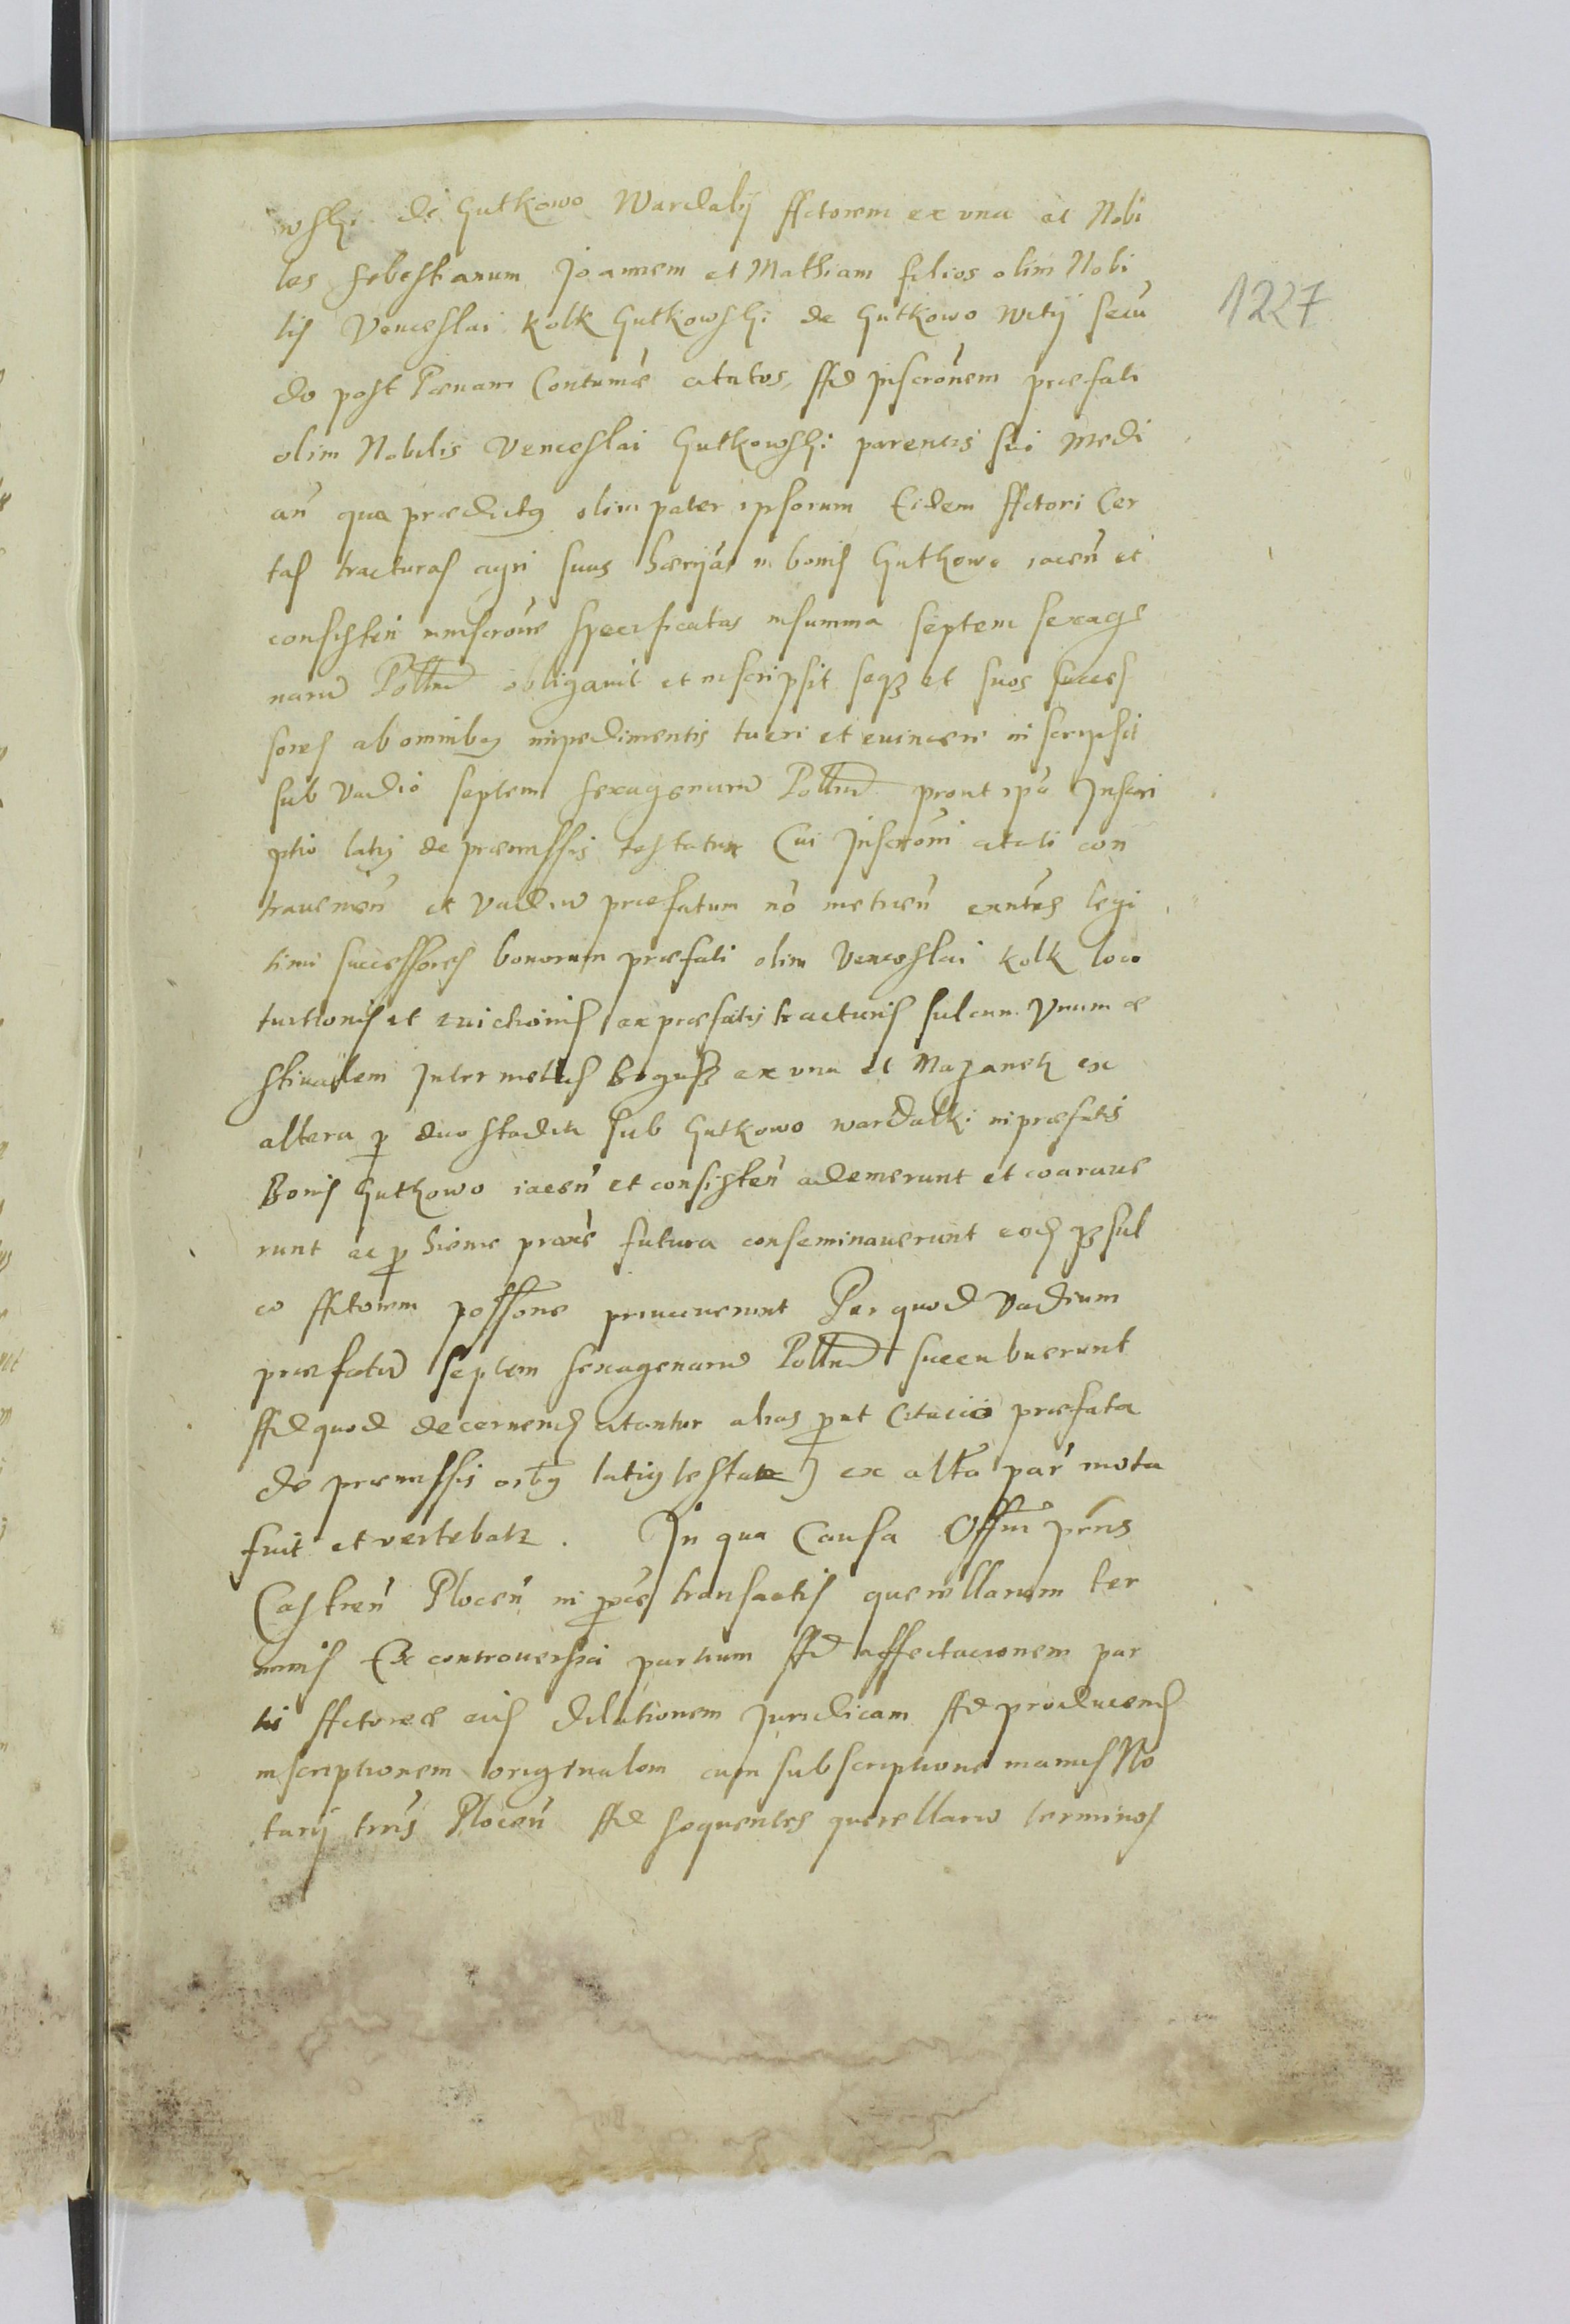 wski de Gutkowo Wardaly ffctorem ex una et Nobi
les Sebestianum Joannem et Mathiam filios olim Nobi
lis Venceslai Kolk Gutkowski de Gutkowo secu
do post Pœnam Contumæ citatos, ffd inscrōnem præfati
olim Nobilis Venceslai Gutkowski parentis sui Medi
an̄ qua prædictus olim pater ipsorum Eidem ffctori Cer
tas tracturas agri suas in bonis Gutkowo iacen̄ et
consisten̄ in inscrōne specificatas in summa septem sexage
narū Polln̄ obligavit et inscripsit seqz et suos succes
sores ab omnibus impedimentis tueri et evincere inscripsit
sub vadio septem sexagenarū Polln̄ prout ipā Inscri
ptio latius de præmissis testatur Cui Inscrōni citati con
travenien̄ et vadiū præfatum nō metuen̄ exn̄tes legi
timi successores bonorum præfati olim Venceslai Kolk loco
tuitionis et evictionis ex præfatis tracturis sulcum Unum æ
stivalem Inter metas Bogusz ex una et Mazanek ex
altera p duo stadia sub Gutkowo wardalki in præfatis
Bonis Gutkowo iacen̄ et consisten̄ ademerunt et coarave
runt ac p hieme proxē futura conseminaverunt eodz sul
co ffctorem possone privaverunt Per quod Vadium
præfatū septem sexagenarū Polln̄ succubuerunt
ffd quod decernend citantur alias put Citatio præfata
de præmissis oibus latius testatr) ex altā par̄ mota
fuit et vertebatr. In qua Causa Offm̄ pn̄s
Castren̄ Plocen̄ in pxe transactis querellarum ter
minis Ex controversia partium ffd affectacionem par
tis ffctoreæ eius dilationem Juridicam ffd producend
inscriptionem originalem cum subscriptione manus No
tarij trris Plocen̄ ffd sequentes querellarū terminos
1227